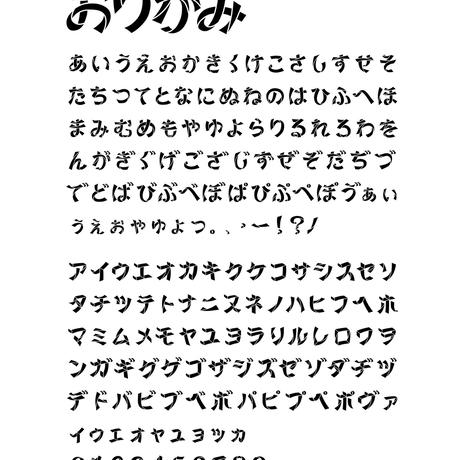 おりがみ
あいうえおかきくけこさしすせそ
たちつてとなにぬねのはひふへほ
まみむめもやゆよらりるれろわを
んがぎぐげござじずぜぞだぢづ
でどばびぶべぼぱぴぷぺぽゔぁぃ
ぅぇぉゃゅょっ。、・ー!?/
アイウエオカキクケコサシスセソ
タチツテトナニヌネノハヒフヘホ
マミムメモヤユヨラリルレロワヲ
ンガギグゲゴザジズゼゾダヂヅ
デドバビブベボパピプペポヴァ
ィゥェォャュョッヵ